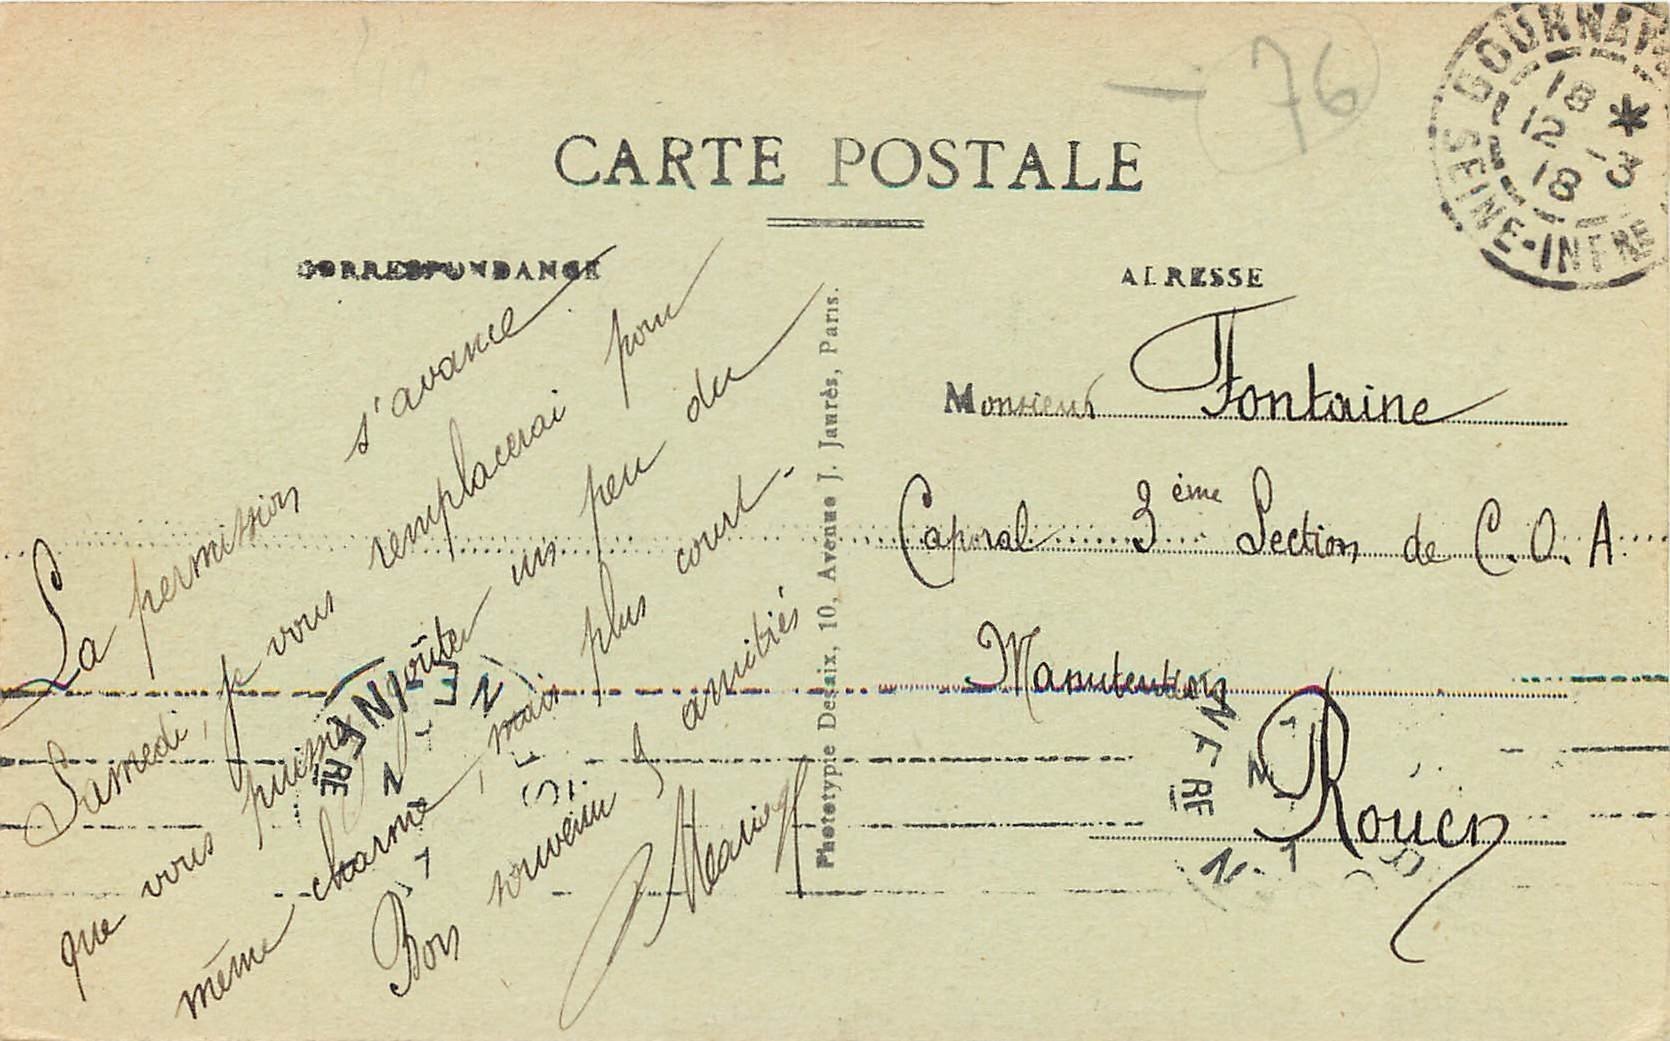 - 76
CARTE POSTALE
CORRESPONDANCE
ADRESSE
GOURNAY
18 *
12 -3
18
SEINE-INFRE
La permission s'avance
Samedi, je vous remplacerai pour
que vous puissiez goûter un peu du
même charme, mais plus court.
Bon souvenir & amitiés
Photótypie Dessaix, 10, Avenue J. Jaurès, Paris.
Monsieur Fontaine
Caporal 3ème Section de C.O.A
Manutention
Rouen